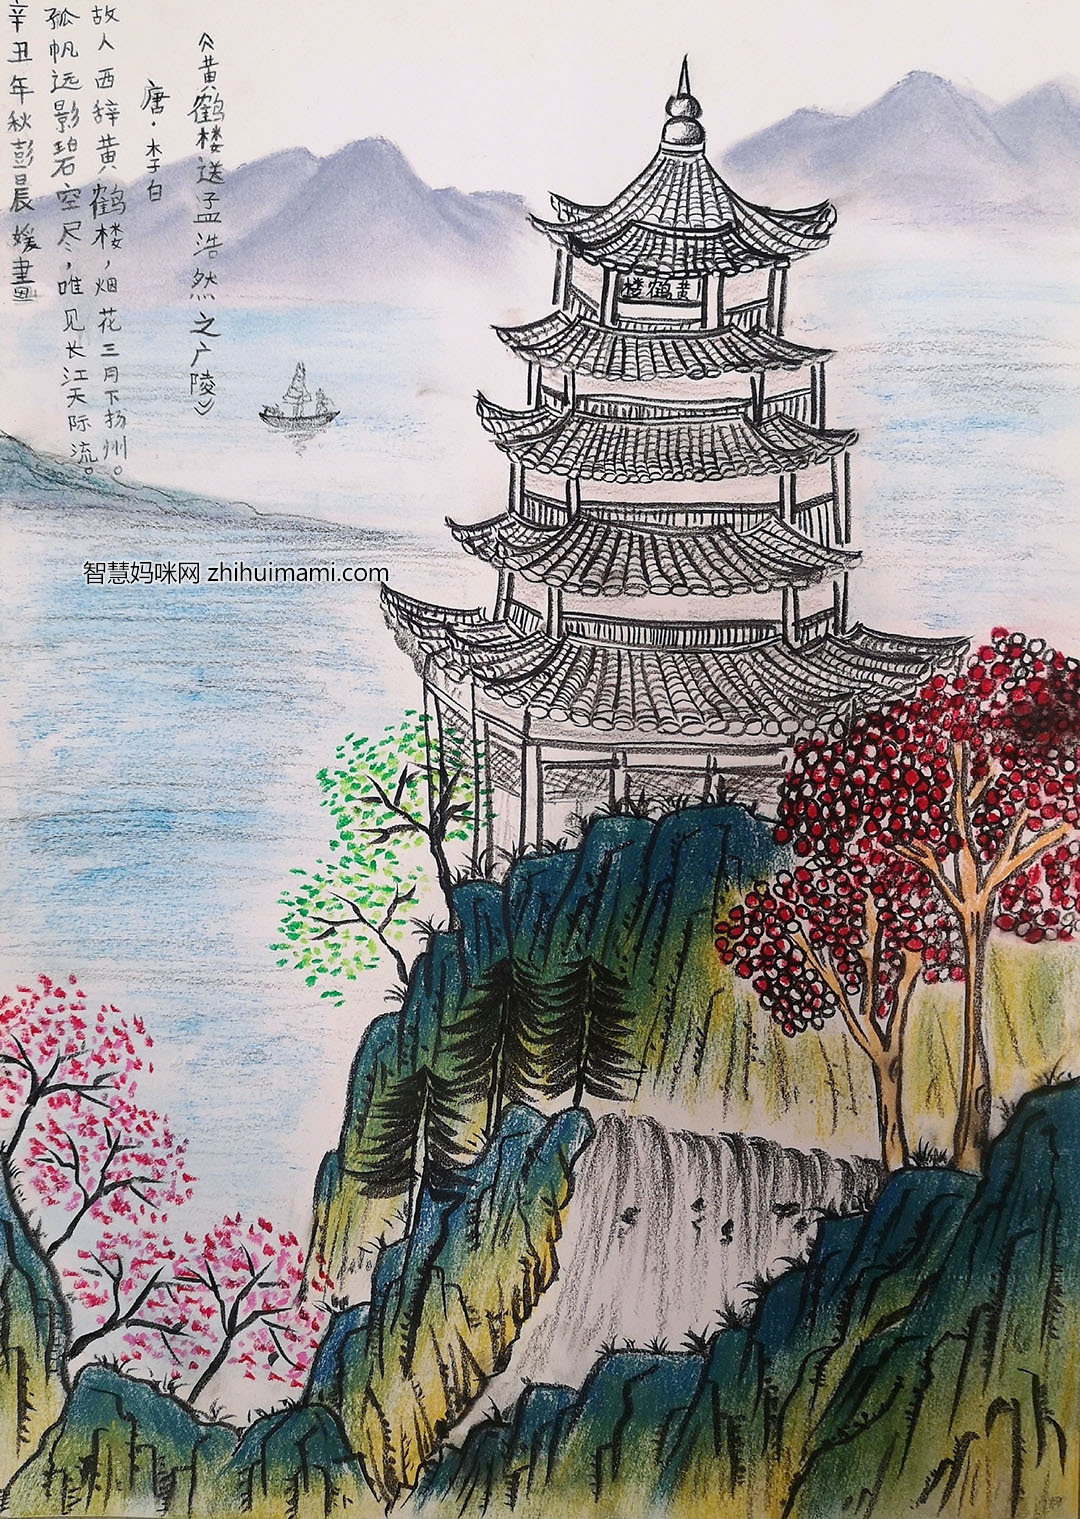 《黄鹤楼送孟浩然之广陵》
唐·李白
故人西辞黄鹤楼，烟花三月下扬州。
孤帆远影碧空尽，唯见长江天际流。
辛丑年秋彭晨媛畫
黄鹤楼
智慧妈咪网 zhihuimami.com